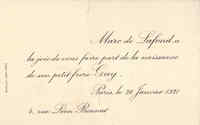 Marc de Lafond a
la joie de vous faire part de la naissance
de son petit frère Guy.
Paris, le 20 Janvier 1921
4, rue Léon Bonnat